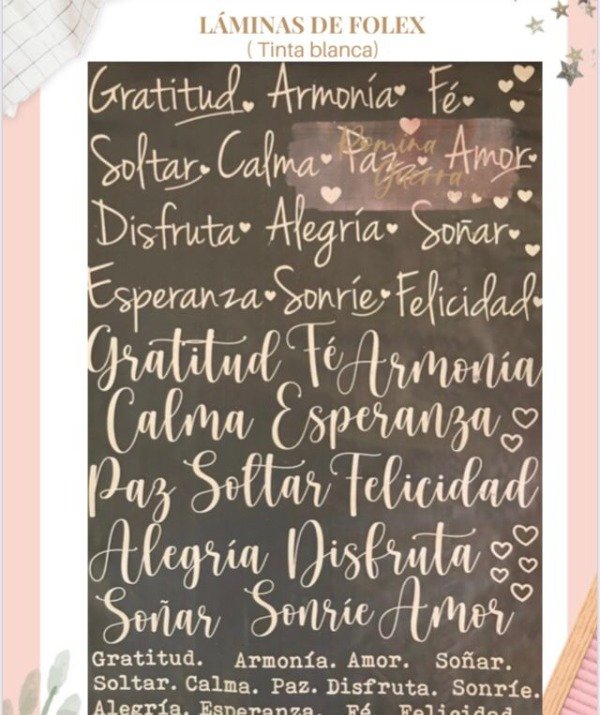 LÁMINAS DE FOLEX
( Tinta blanca)
Gratitud Armonía Fé
Soltar Calma Paz Amor
Romina
Guerra
Disfruta Alegría Soñar
Esperanza Sonríe Felicidad
Gratitud Fé Armonía
Calma Esperanza
Paz Soltar Felicidad
Alegría Disfruta
Soñar Sonríe Amor
Gratitud. Armonía. Amor. Soñar.
Soltar. Calma. Paz. Disfruta. Sonríe.
Alegría. Esperanza. Fé. Felicidad.